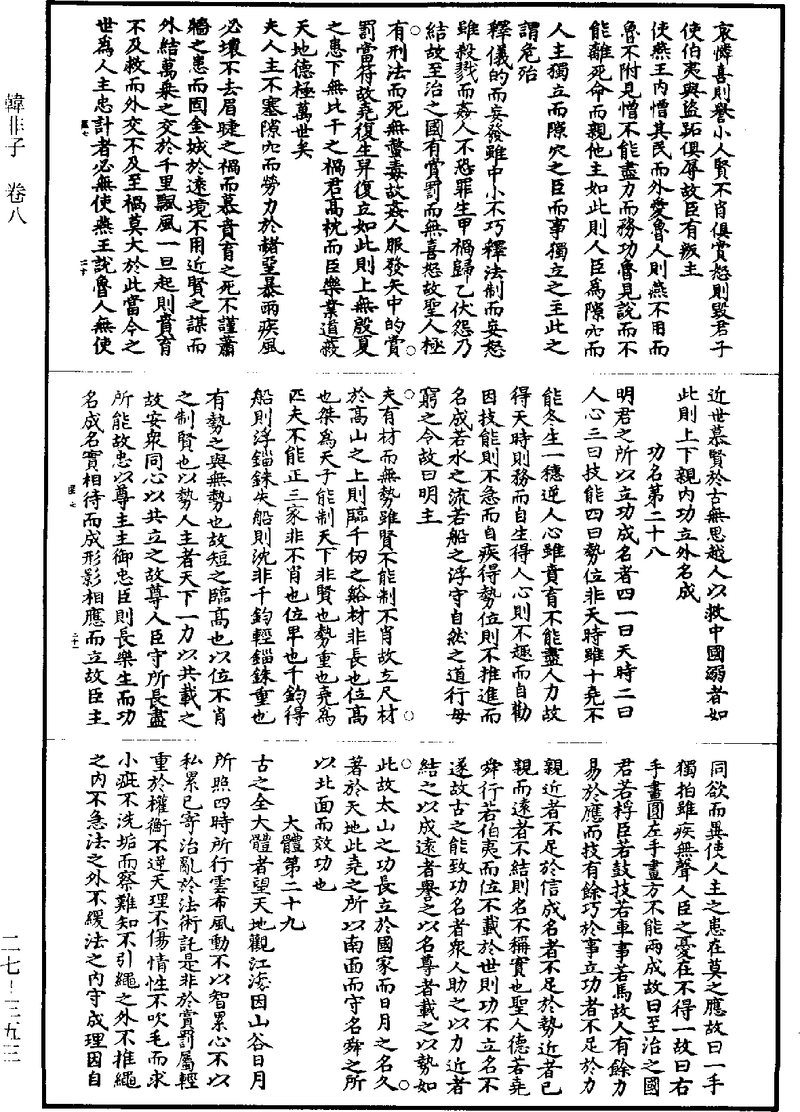 哀憐喜則譽小人賢不肖俱賞怒則毀君子
使伯夷與盜跖俱辱故臣有叛主
使燕王內憎其民而外愛魯人則燕不用而
魯不附見憎不能盡力而務功魯見說而不
能離死命而親他主如此則人臣爲隙穴而
人主獨立而隙穴之臣而事獨立之主此之
謂危殆
釋儀的而妄發雖中小不巧釋法制而妄怒
雖殺戮而姦人不恐罪生甲禍歸乙伏怨乃
結故至治之國有賞罰而無喜怒故聖人極
有刑法而死無螫毒故姦人服發矢中的賞
罰當符故堯復生羿復立如此則上無殷夏
之患下無比干之禍君高枕而臣樂業道蔽
天地德極萬世矣
夫人主不塞隙穴而勞力於赭堊暴雨疾風
必壞不去眉睫之禍而慕賁育之死不謹蕭
牆之患而固金城於遠境不用近賢之謀而
外結萬乘之交於千里飄風一旦起則賁育
不及救而外交不及至禍莫大於此當今之
世爲人主忠計者必無使燕王說魯人無使
近世慕賢於古無思越人以救中國溺者如
此則上下親內功立外名成
功名第二十八
明君之所以立功成名者四一曰天時二曰
人心三曰技能四曰勢位非天時雖十堯不
能冬生一穗逆人心雖賁育不能盡人力故
得天時則務而自生得人心則不趣而自勸
因技能則不急而自疾得勢位則不推進而
名成若水之流若船之浮守自然之道行毋
窮之令故曰明主
夫有材而無勢雖賢不能制不肖故立尺材
於高山之上則臨千仞之谿材非長也位高
也桀爲天子能制天下非賢也勢重也堯爲
匹夫不能正三家非不肖也位卑也千鈞得
船則浮錙銖失船則沈非千鈞輕錙銖重也
有勢之與無勢也故短之臨高也以位不肖
之制賢也以勢人主者天下一力以共載之
故安衆同心以共立之故尊人臣守所長盡
所能故忠以尊主主御忠臣則長樂生而功
名成名實相待而成形影相應而立故臣主
同欲而異使人主之患在莫之應故曰一手
獨拍雖疾無聲人臣之憂在不得一故曰右
手畫圓左手畫方不能兩成故曰至治之國
君若桴臣若鼓技若車事若馬故人有餘力
易於應而技有餘巧於事立功者不足於力
親近者不足於信成名者不足於勢近者已
親而遠者不結則名不稱實也聖人德若堯
舜行若伯夷而位不載於世則功不立名不
遂故古之能致功名者衆人助之以力近者
結之以成遠者譽之以名尊者載之以勢如
此故太山之功長立於國家而日月之名久
著於天地此堯之所以南面而守名舜之所
以北面而效功也
大體第二十九
古之全大體者望天地觀江海因山谷日月
所照四時所行雲布風動不以智累心不以
私累已寄治亂於法術託是非於賞罰屬輕
重於權衡不逆天理不傷情性不吹毛而求
小疵不洗垢而察難知不引繩之外不推繩
之內不急法之外不緩法之內守成理因自
韓非子 卷八
二七—三九三